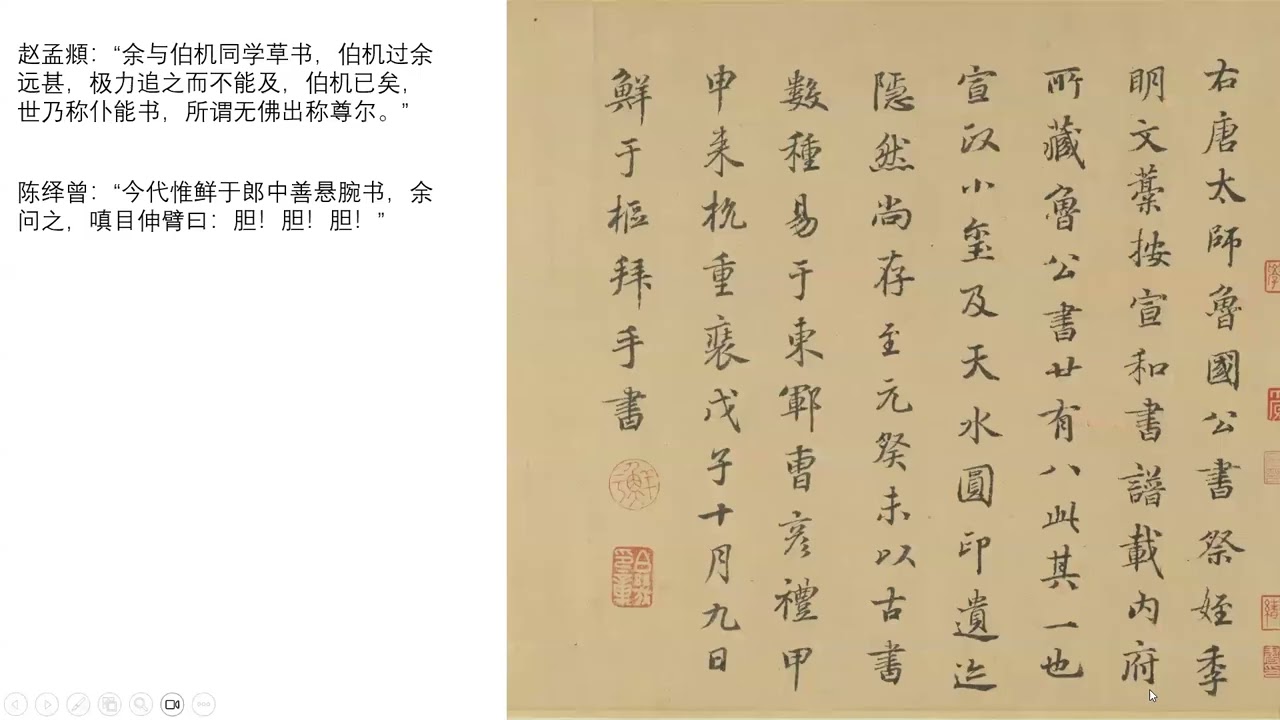 赵孟頫：“余与伯机同学草书，伯机过余
远甚，极力追之而不能及，伯机已矣，
世乃称仆能书，所谓无佛出称尊尔。”
陈绎曾：“今代惟鲜于郎中善悬腕书，余
问之，嗔目伸臂曰：胆！胆！胆！”
右唐太師魯國公書祭姪季
明文藁按宣和書譜載内府
所藏魯公書廿有八此其一也
宣政小璽及天水圓印遺迹
隱然尚存至元癸未以古書
數種易于東鄆曹彦禮甲
申来杭重裝戊子十月九日
鮮于樞拜手書